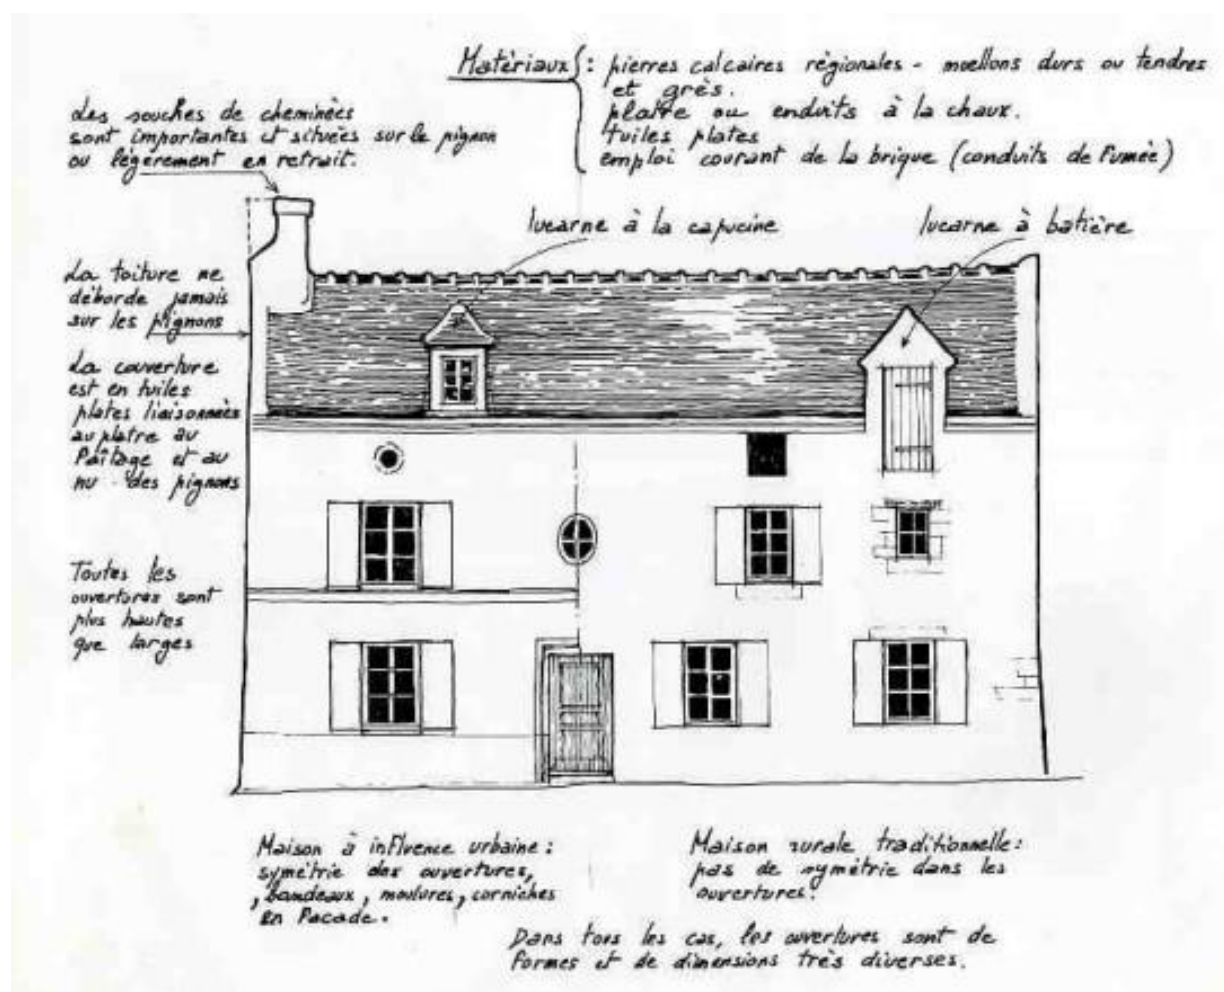 Matériaux : pierres calcaires régionales - moellons durs ou tendres
et grès.
plâtre ou enduits à la chaux.
tuiles plates
emploi courant de la brique (conduits de fumée)
Les souches de cheminées
sont importantes et situées sur le pignon
ou légèrement en retrait.
lucarne à la capucine
lucarne à batière
La toiture ne
déborde jamais
sur les pignons
La couverture
est en tuiles
plates liaisonnées
au platre au
faîtage et au
nu des pignons
Toutes les
ouvertures sont
plus hautes
que larges
Maison à influence urbaine :
symétrie des ouvertures,
bandeaux, moulures, corniches
en facade.
Maison rurale traditionnelle :
pas de symétrie dans les
ouvertures.
Dans tous les cas, les ouvertures sont de
formes et de dimensions très diverses.